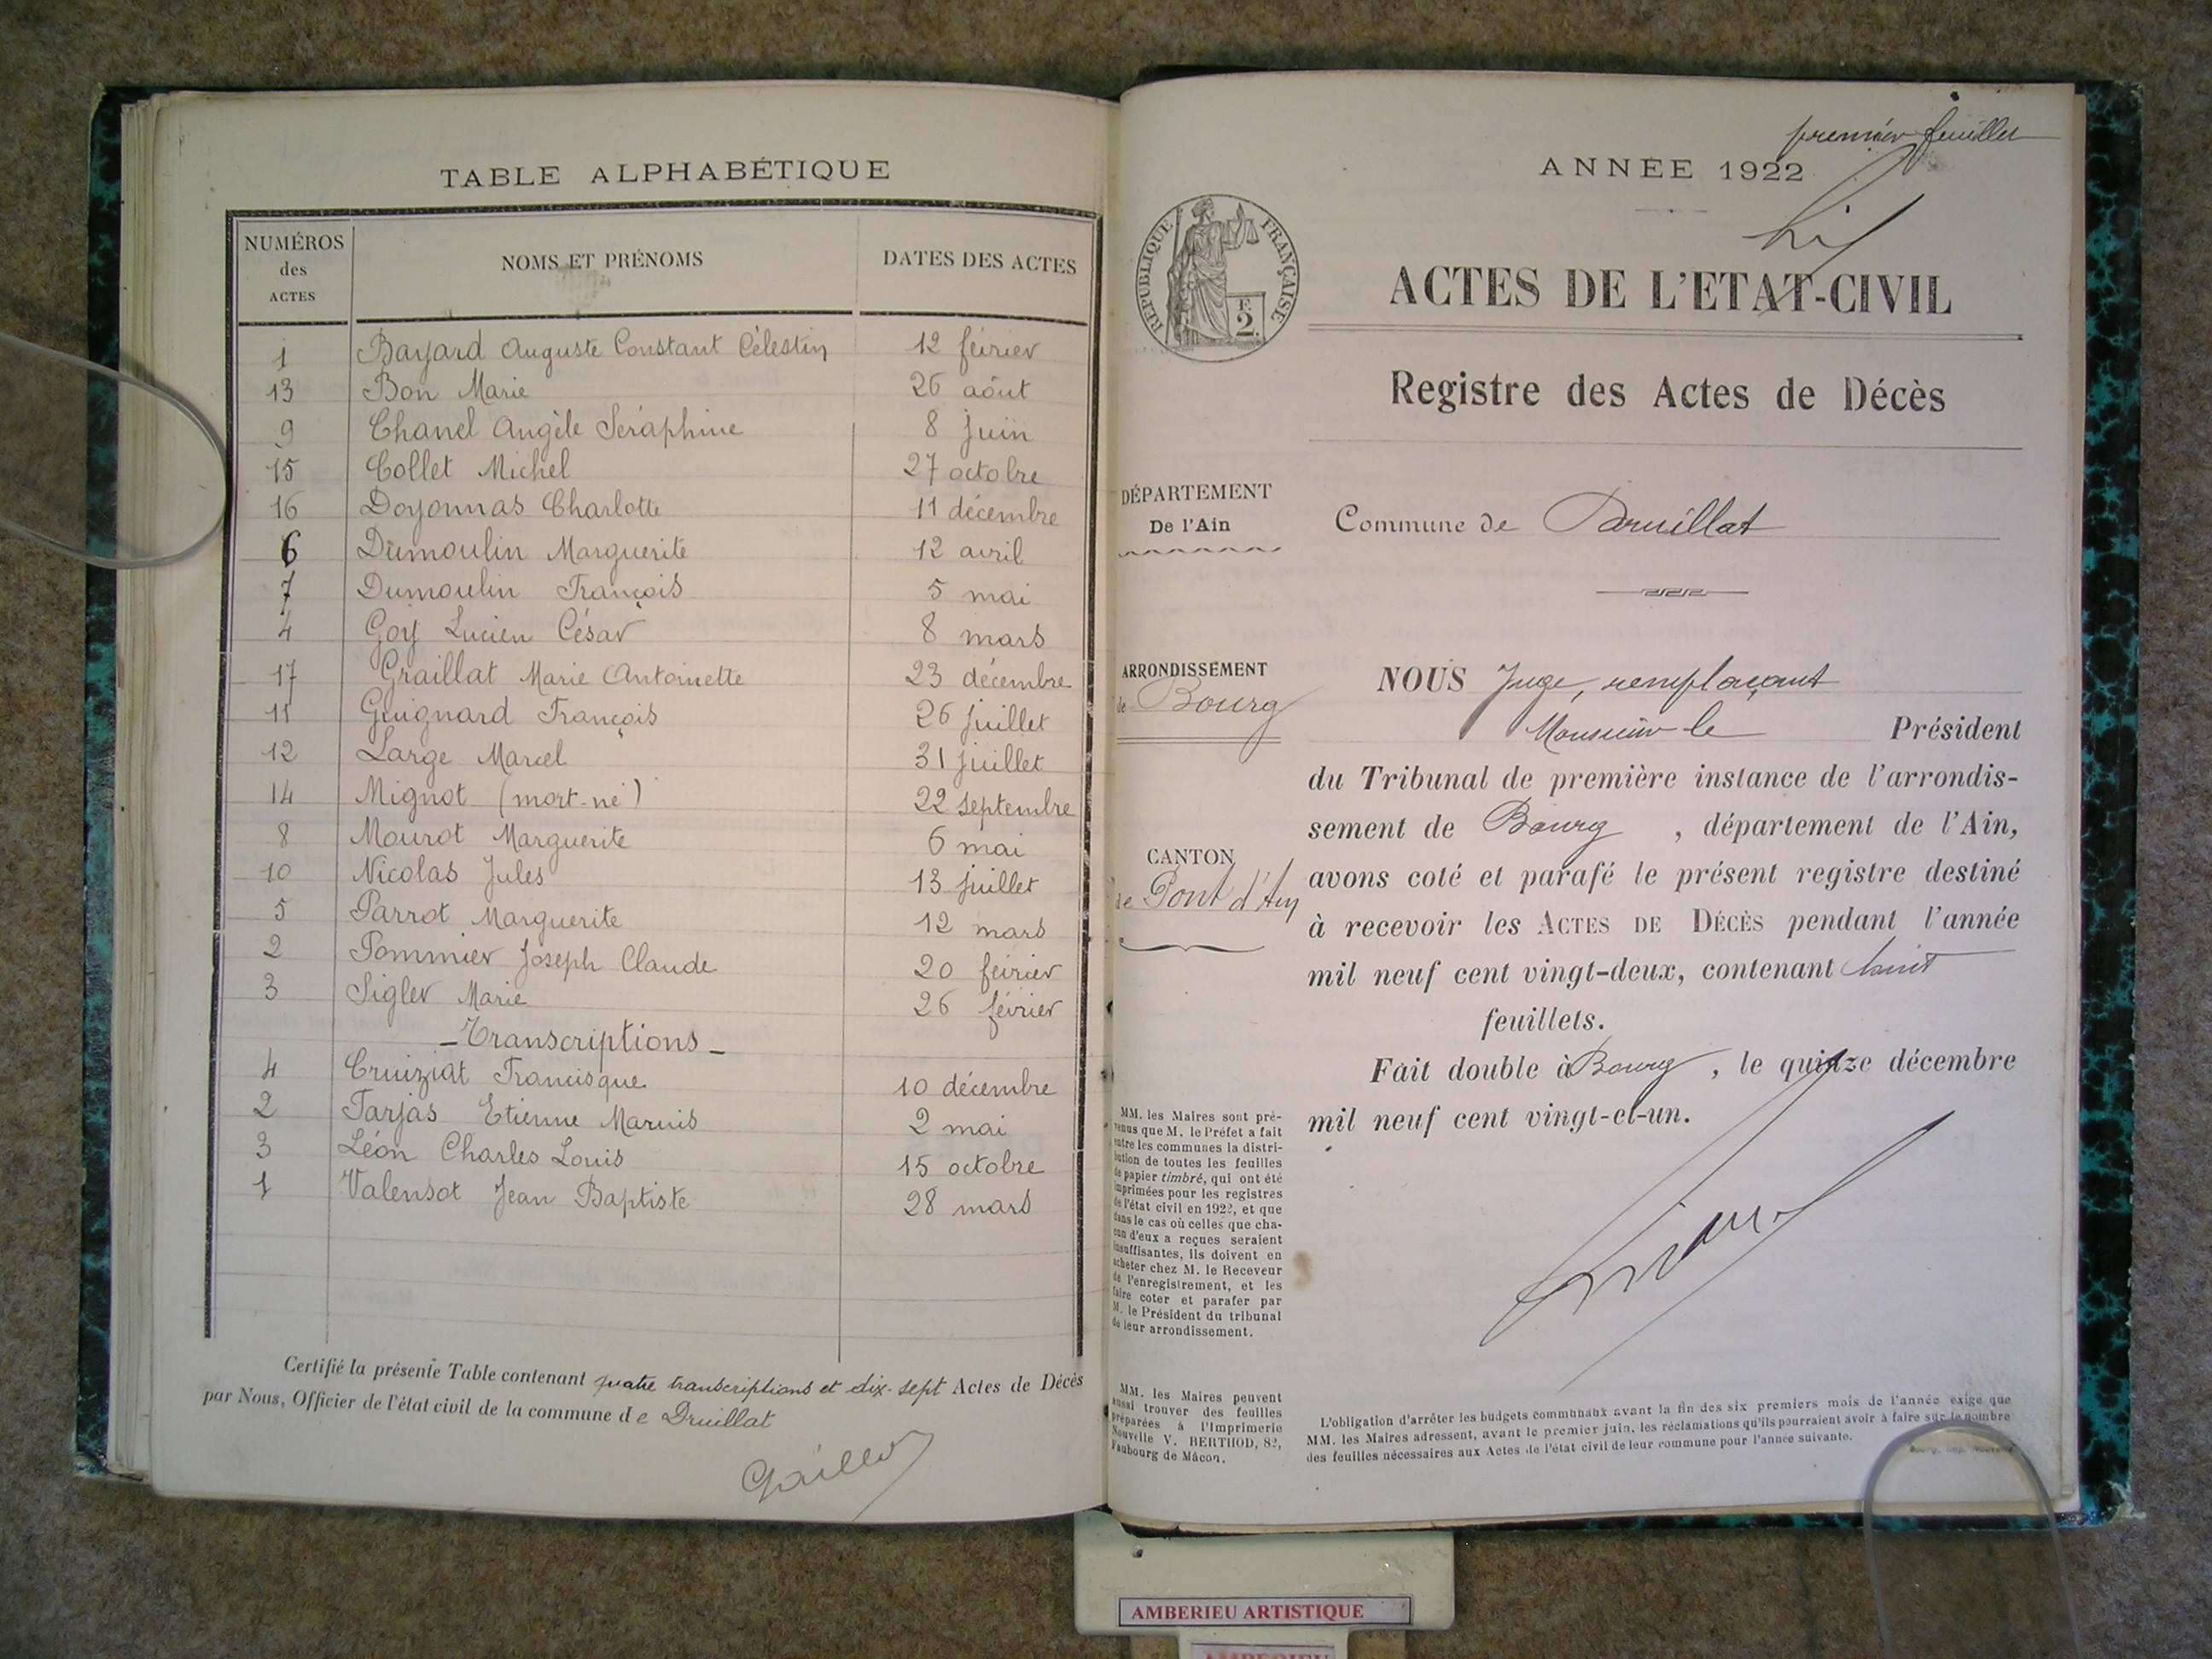 TABLE ALPHABÉTIQUE
NUMÉROS des ACTES NOMS ET PRÉNOMS DATES DES ACTES
1 Bayard Auguste Constant Célestin 12 février
13 Bon Marie 26 aôut
9 Chanel Angèle Séraphine 8 juin
15 Collet Michel 27 octobre
16 Doyonnas Charlotte 11 décembre
6 Dumoulin Marguerite 12 avril
7 Dumoulin François 5 mai
4 Goy Lucien César 8 mars
17 Graillat Marie Antoinette 23 décembre
11 Guignard François 26 juillet
12 Large Marcel 31 juillet
14 Mignot (mort-né) 22 septembre
8 Mourot Marguerite 6 mai
10 Nicolas Jules 13 juillet
5 Parrot Marguerite 12 mars
2 Pommier Joseph Claude 20 février
3 Sigler Marie 26 février
- Transcriptions -
4 Cruiziat Francisque 10 décembre
2 Tarjas Etienne Marius 2 mai
3 Léon Charles Louis 15 octobre
1 Valensot Jean Baptiste 28 mars
Certifié la présente Table contenant quatre transcriptions et dix-sept Actes de Décès
par Nous, Officier de l'état civil de la commune de Druillat
premier feuillet
ANNÉE 1922
RÉPUBLIQUE FRANÇAISE
2 F.
ACTES DE L'ETAT-CIVIL
Registre des Actes de Décès
DÉPARTEMENT
De l'Ain
Commune de Druillat
ARRONDISSEMENT
de Bourg
CANTON
de Pont d'Ain
NOUS Juge, remplaçant
Monsieur le Président
du Tribunal de première instance de l'arrondis-
sement de Bourg, département de l'Ain,
avons coté et parafé le présent registre destiné
à recevoir les ACTES DE DÉCÈS pendant l'année
mil neuf cent vingt-deux, contenant huit
feuillets.
Fait double à Bourg, le quinze décembre
mil neuf cent vingt-et-un.
MM. les Maires sont pré-
venus que M. le Préfet a fait
entre les communes la distri-
bution de toutes les feuilles
de papier timbré, qui ont été
imprimées pour les registres
de l'état civil en 1922, et que
dans le cas où celles que cha-
cun d'eux a reçues seraient
insuffisantes, ils doivent en
acheter chez M. le Receveur
de l'enregistrement, et les
faire coter et parafer par
M. le Président du tribunal
de leur arrondissement.
MM. les Maires peuvent
aussi trouver des feuilles
préparées à l'Imprimerie
Nouvelle V. BERTHOD, 82,
Faubourg de Mâcon.
L'obligation d'arrêter les budgets communaux avant la fin des six premiers mois de l'année exige que
MM. les Maires adressent, avant le premier juin, les réclamations qu'ils pourraient avoir à faire sur le nombre
des feuilles nécessaires aux Actes de l'état civil de leur commune pour l'année suivante.
AMBERIEU ARTISTIQUE
AMBERIEU